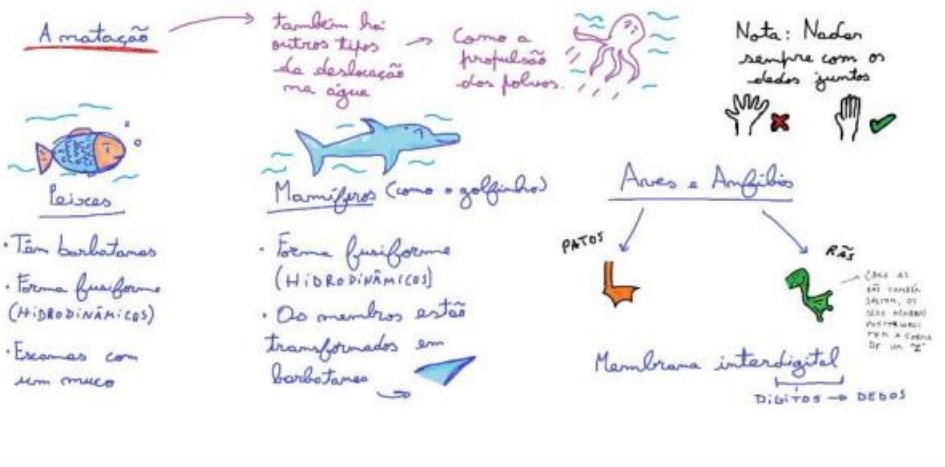 A natação
também há
outros tipos
da deslocação
na água
Como a
propulsão
dos polvos.
Nota: Nadar
sempre com os
dedos juntos
Peixes
• Têm barbatanas
• Forma fusiforme
(HIDRODINÂMICOS)
• Escamas com
um muco
Mamíferos (como o golfinho)
• Forma fusiforme
(HIDRODINÂMICOS)
• Os membros estão
transformados em
barbatanas
Aves e Anfíbios
PATOS
RÃS
COMO AS
RÃS TAMBÉM
SALTAM, OS
SEUS MEMBROS
POSTERIORES
TÊM A FORMA
DE UM "Z"
Membrana interdigital
DIGITOS → DEDOS